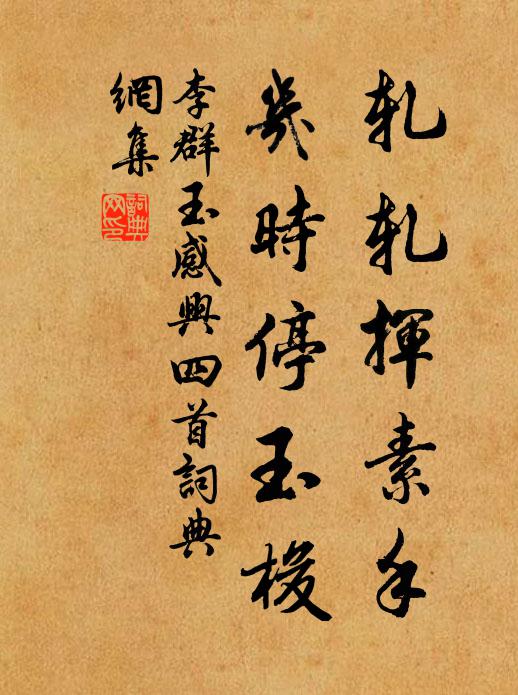 札札揮素手
幾時停玉梭
李群玉感興四首詞典
網集
詞典
网印